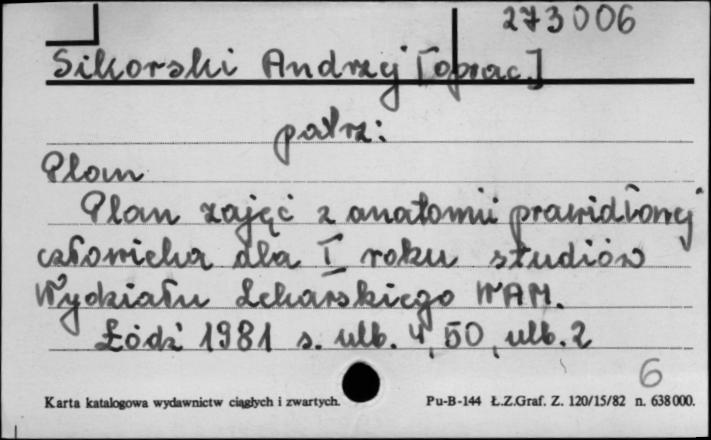 273006
Sikorski Andrzej [oprac.]
patrz:
Plan
Plan zajęć z anatomii prawidłowej
człowieka dla I roku studiów
Wydziału Lekarskiego WAM.
Łódź 1981 s. ulb. 4, 50, ulb. 2
6
Karta katalogowa wydawnictw ciągłych i zwartych. Pu-B-144 Ł.Z.Graf. Z. 120/15/82 n. 638000.